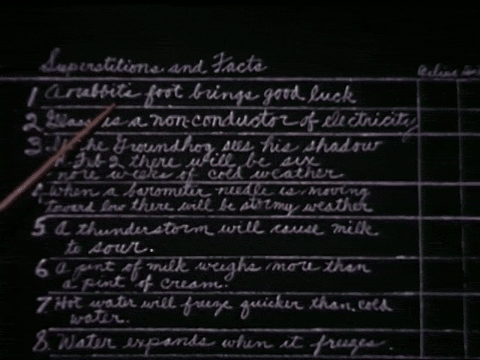 Superstitions and Facts
Believe
1 A rabbit's foot brings good luck
2 Glass is a non conductor of electricity
3 If the Groundhog sees his shadow
on Feb 2 there will be six
more weeks of cold weather
4 When a barometer needle is moving
toward low there will be stormy weather
5 A thunderstorm will cause milk
to sour.
6 A pint of milk weighs more than
a pint of cream.
7 Hot water will freeze quicker than cold
water.
8. Water expands when it freezes.